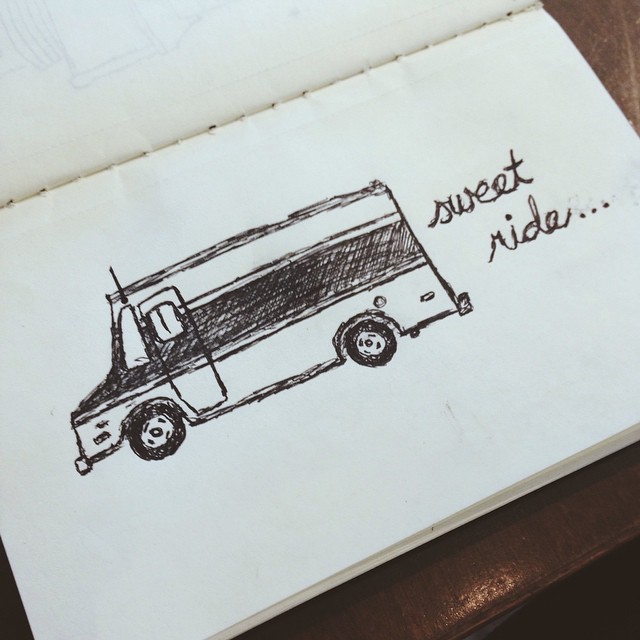 sweet
ride...